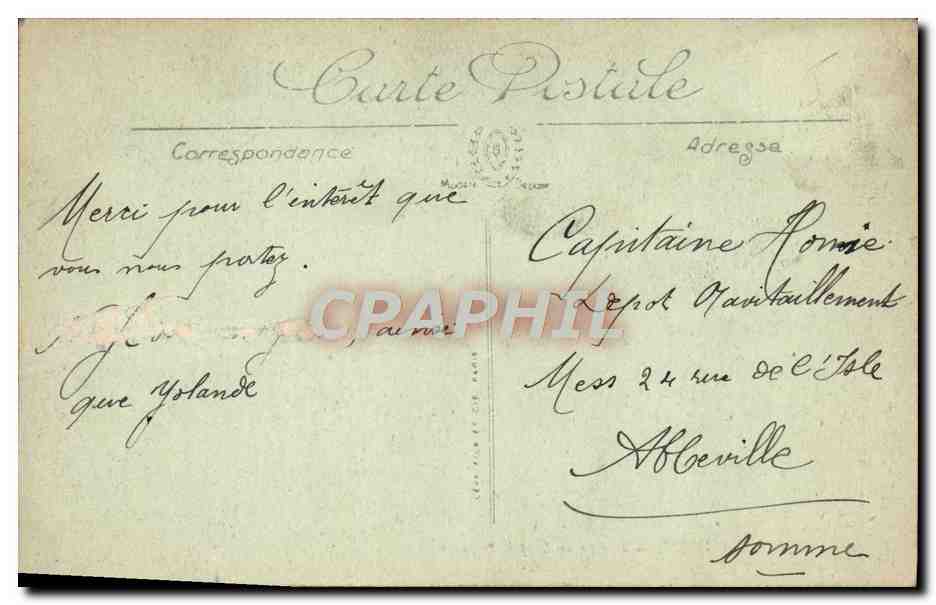 Carte Postale
Correspondance
Adresse
Merci pour l'intérêt que
vous nous portez.
ainsi
que Yolande
CPARHIL
LEVY FILS ET CIE PARIS
Capitaine Homie
Dépot Ravitaillement
Mess 24 rue de l'Isle
Abbeville
Somme